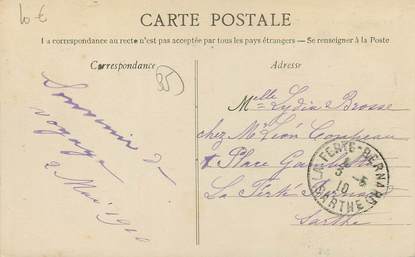 10 €
CARTE POSTALE
La correspondance au recto n'est pas acceptée par tous les pays étrangers — Se renseigner à la Poste
Correspondance
35
Adresse
Souvenir d'
voyage
2 Mai 1910
Melle Lydia Brosse
chez Mr Léon
Place
La Ferté Bernard
Sarthe
LA FERTÉ-BERNARD
3 -5
10
SARTHE